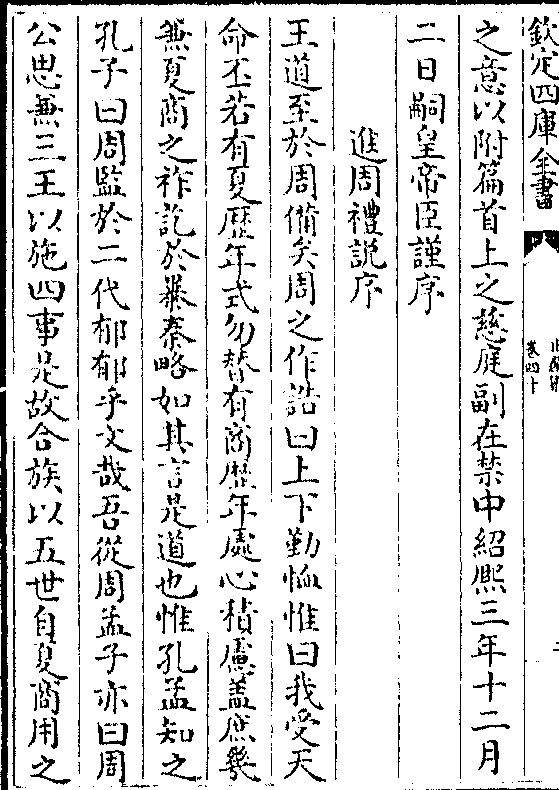 欽定四庫全書
卷四十
之意以附篇首上之慈庭副在禁中紹熙三年十二月
二日嗣皇帝臣謹序
進周禮說序
王道至於周備矣周之作誥曰上下勤恤惟曰我受天
命丕若有夏歴年式勿替有商歴年處心積慮蓋庶幾
兼夏商之祚訖於暴秦略如其言是道也惟孔孟知之
孔子曰周監於二代郁郁乎文哉吾從周孟子亦曰周
公思兼三王以施四事是故合族以五世自夏商用之